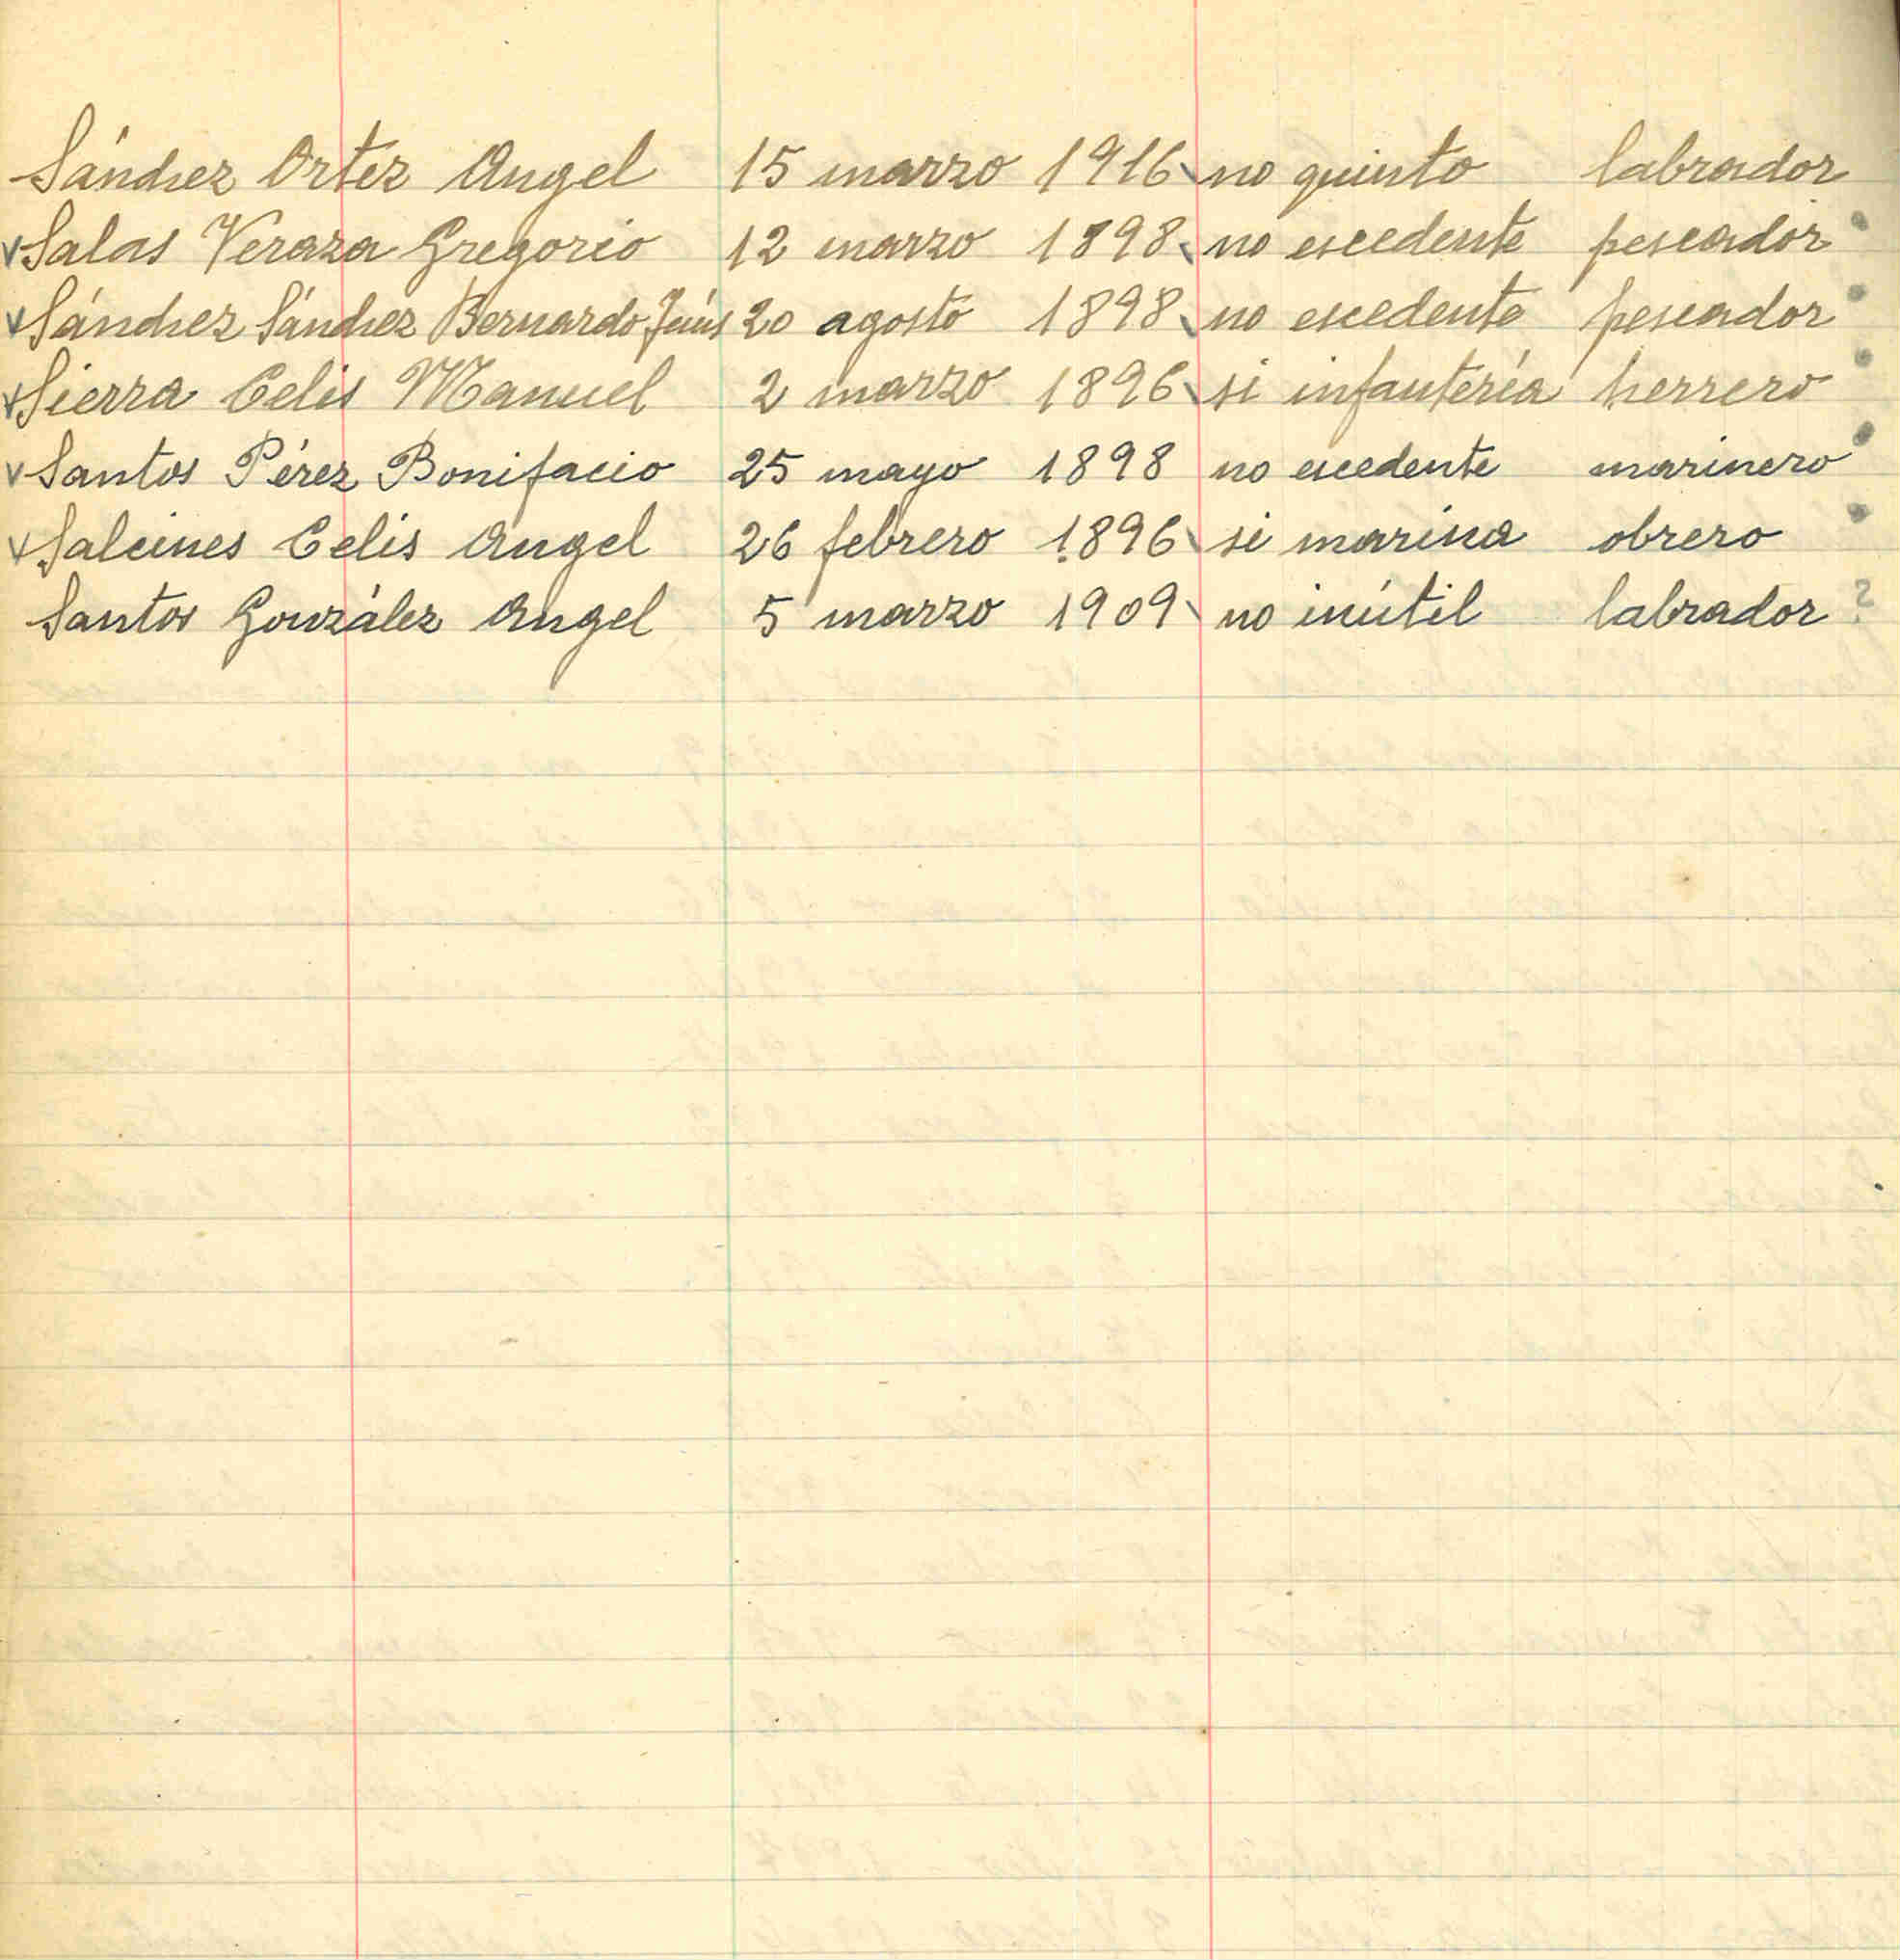 Sánchez Ortez Angel 15 marzo 1916 no quinto labrador
Salas Veraza Gregorio 12 marzo 1898 no escedente pescador
Sánchez Sánchez Bernardo Jesús 20 agosto 1898 no escedente pescador
Sierra Celis Manuel 2 marzo 1896 si infantería herrero
Santos Pérez Bonifacio 25 mayo 1898 no escedente marinero
Salcines Celis Angel 26 febrero 1896 si marina obrero
Santos González Angel 5 marzo 1909 no inútil labrador ?